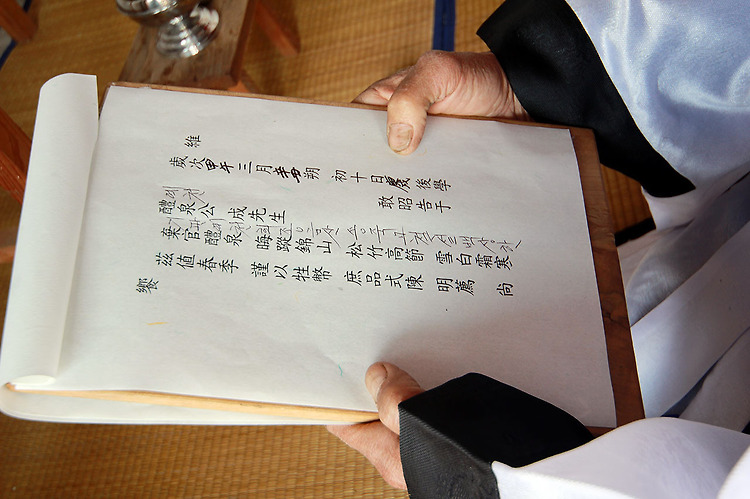 維
歲次甲午三月辛丑朔 初十日庚戌後學
敢昭告于
醴泉公成先生
棄官醴泉晦蹤錦山 松竹高節 雪白霜寒
茲値春季 謹以牲幣 庶品式陳 明薦 尚
饗